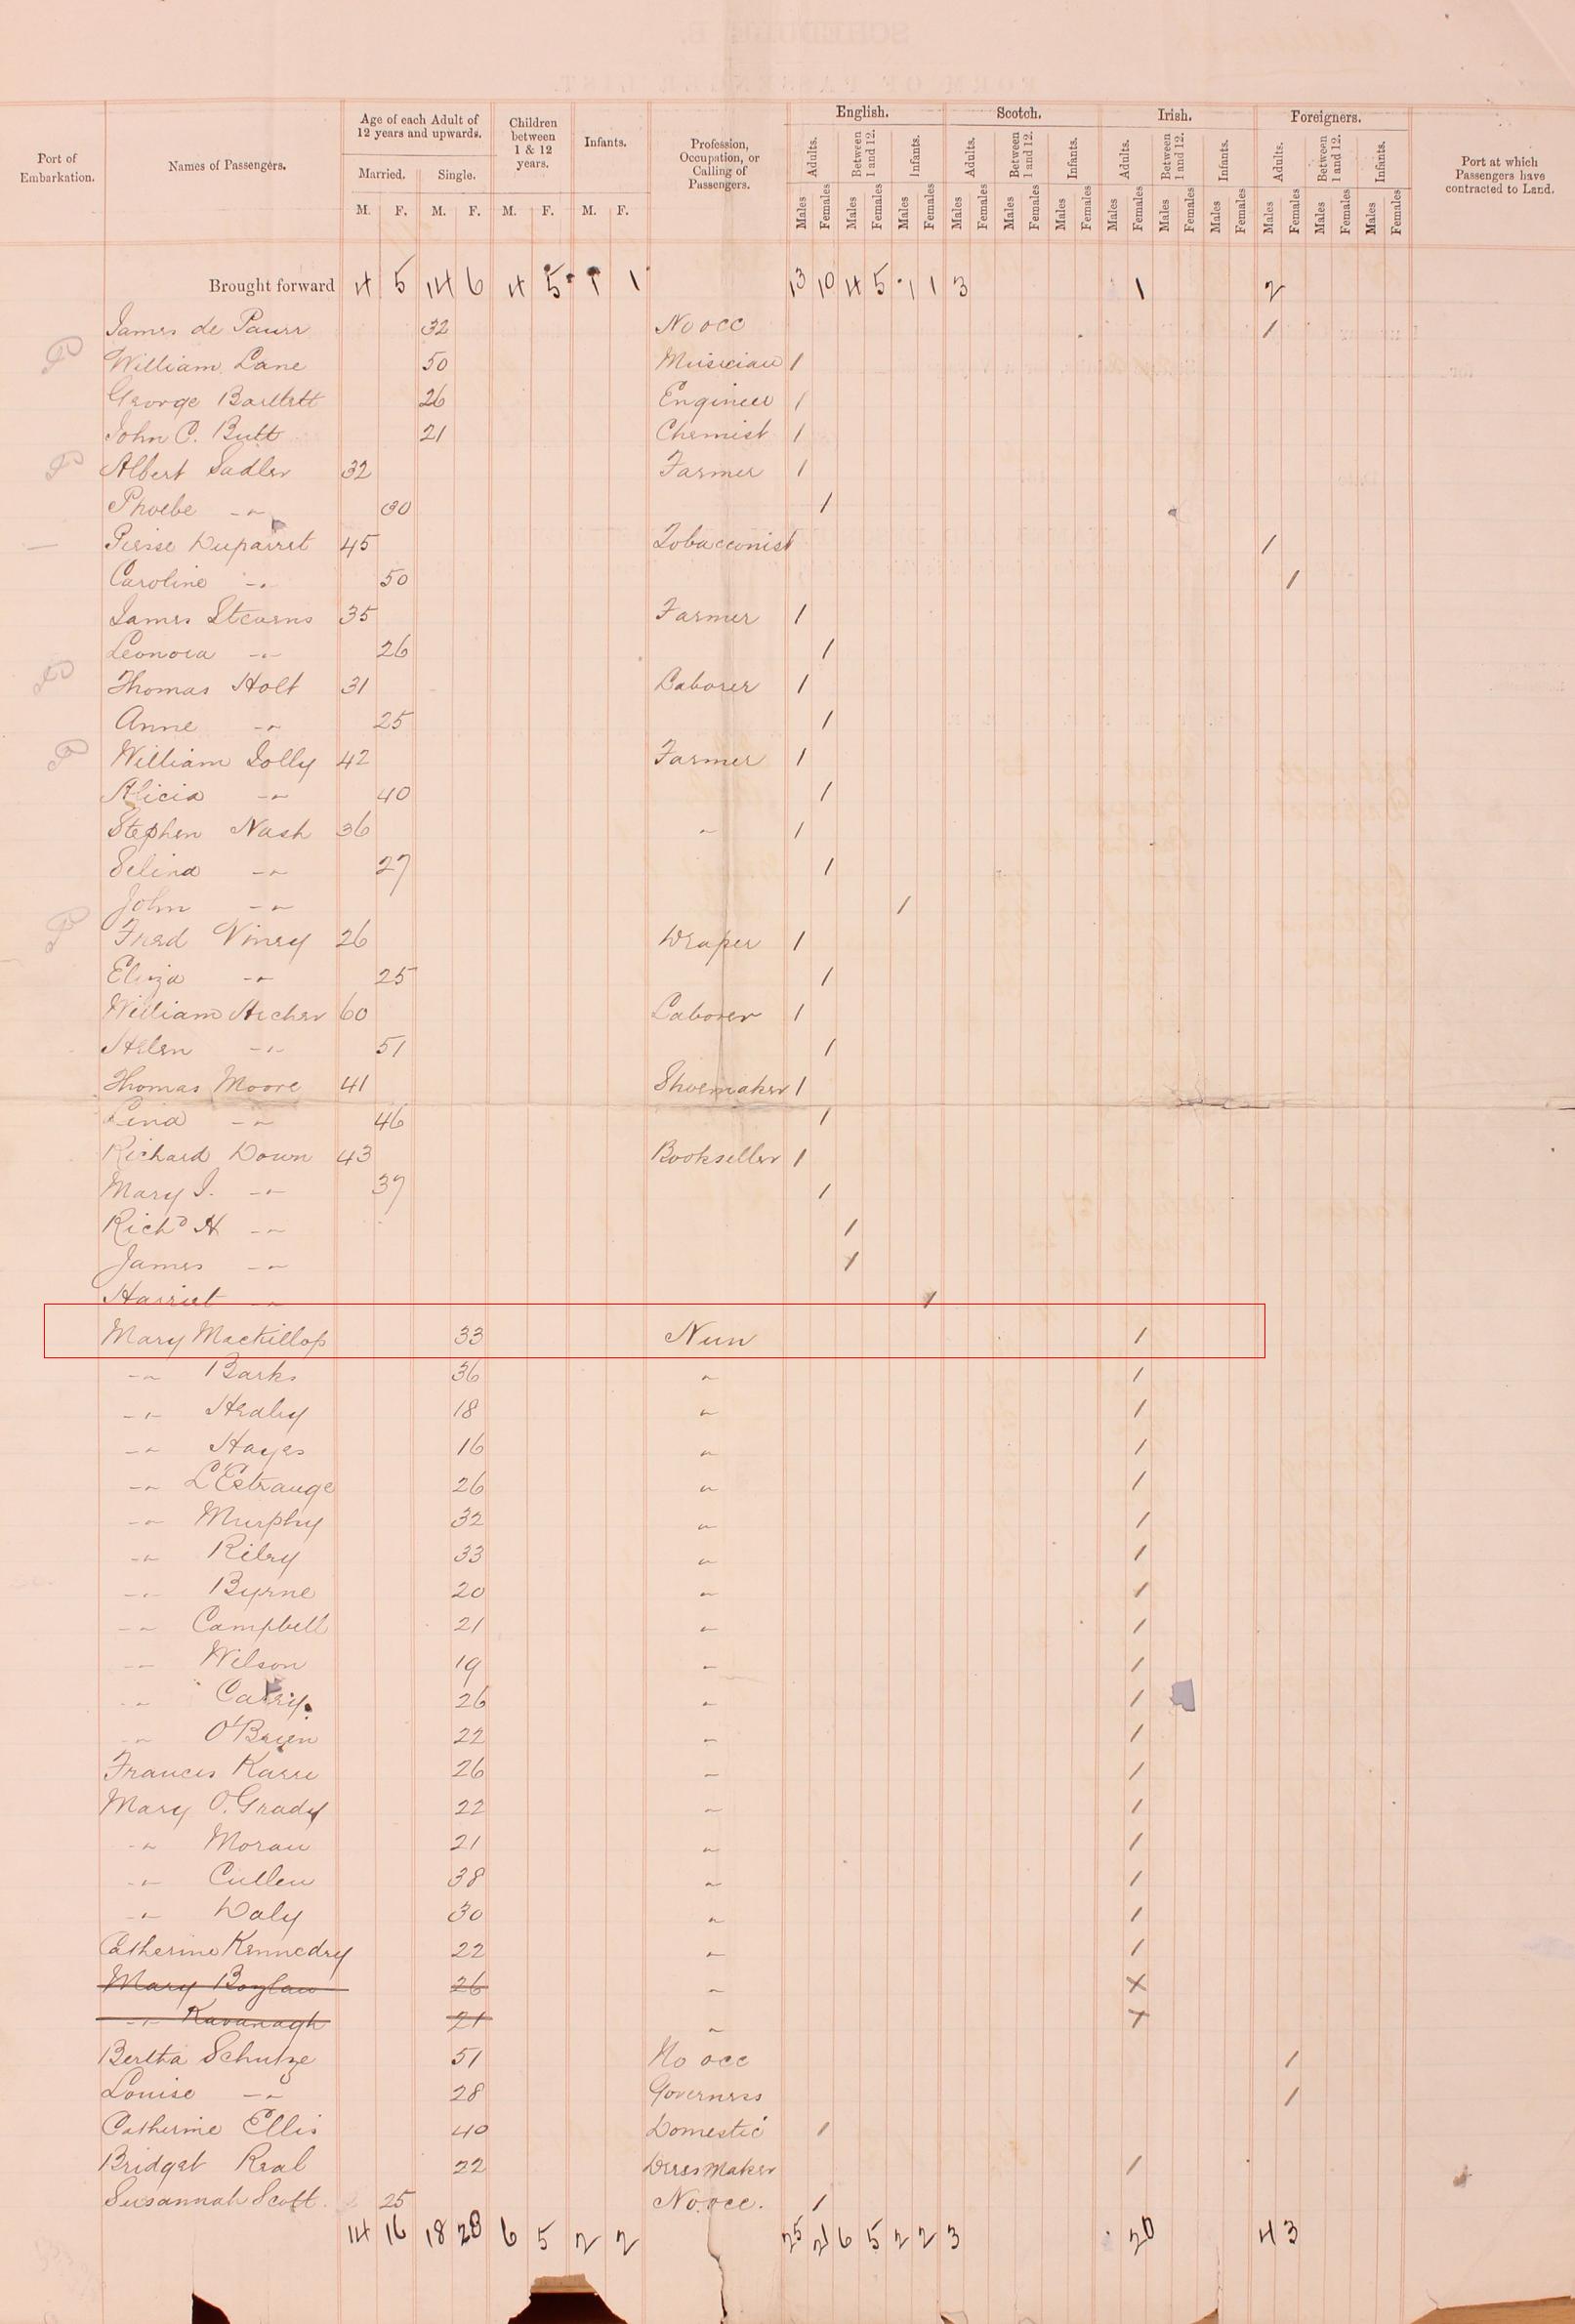 Port of Embarkation. Names of Passengers. Age of each Adult of 12 years and upwards. Children between 1 & 12 years. Infants. Profession, Occupation, or Calling of Passengers. English. Scotch. Irish. Foreigners. Port at which Passengers have contracted to Land.
Married. Single. Adults. Between 1 and 12. Infants. Adults. Between 1 and 12. Infants. Adults. Between 1 and 12. Infants. Adults. Between 1 and 12. Infants.
M. F. M. F. M. F. M. F. Males Females Males Females Males Females Males Females Males Females Males Females Males Females Males Females Males Females Males Females Males Females Males Females
Brought forward 4 5 14 6 4 5 1 1 13 10 4 5 1 1 3 1 2
James de 32 No occ 1
William Lane 50 Musician 1
George Bartlett 26 Engineer 1
John C. Butt 21 Chemist 1
Albert Sadler 32 Farmer 1
Phoebe -"- 30 1
Pierse Duparret 45 Tobacconist 1
Caroline -"- 50 1
James Stevens 35 Farmer 1
Leonora -"- 26 1
Thomas Holt 31 Laborer 1
Anne -"- 25 1
William Jolly 42 Farmer 1
Alicia -"- 40 1
Stephen Nash 36 " 1
Selina -"- 27 1
John -"- 1
Fred Viney 26 Draper 1
Eliza -"- 25 1
William Archer 60 Laborer 1
Helen -"- 51 1
Thomas Moore 41 Shoemaker 1
Lena -"- 46 1
Richard Down 43 Bookseller 1
Mary J. -"- 37 1
Richd H -"- 1
James -"- 1
Harriet -"- 1
Mary Mackillop 33 Nun 1
-"- Barks 36 " 1
-"- Healey 18 " 1
-"- Hayes 16 " 1
-"- L'Estrange 26 " 1
-"- Murphy 32 " 1
-"- Riley 33 " 1
-"- Byrne 20 " 1
-"- Campbell 21 " 1
-"- Wilson 19 " 1
-"- 26 " 1
-"- O'Brien 22 " 1
Frances 26 " 1
Mary O'Grady 22 " 1
-"- Moran 21 " 1
-"- Cullen 38 " 1
-"- Daly 30 " 1
Catherine Kennedy 22 " 1
Mary Boylan 26 " X
-"- Kavanagh 21 " X
Bertha Schutze 51 No occ 1
Louise -"- 28 Governess 1
Catherine Ellis 40 Domestic 1
Bridget Real 22 Dress Maker 1
Susannah Scott. 25 No occ. 1
14 16 18 28 6 5 2 2 25 21 6 5 2 2 3 20 4 3